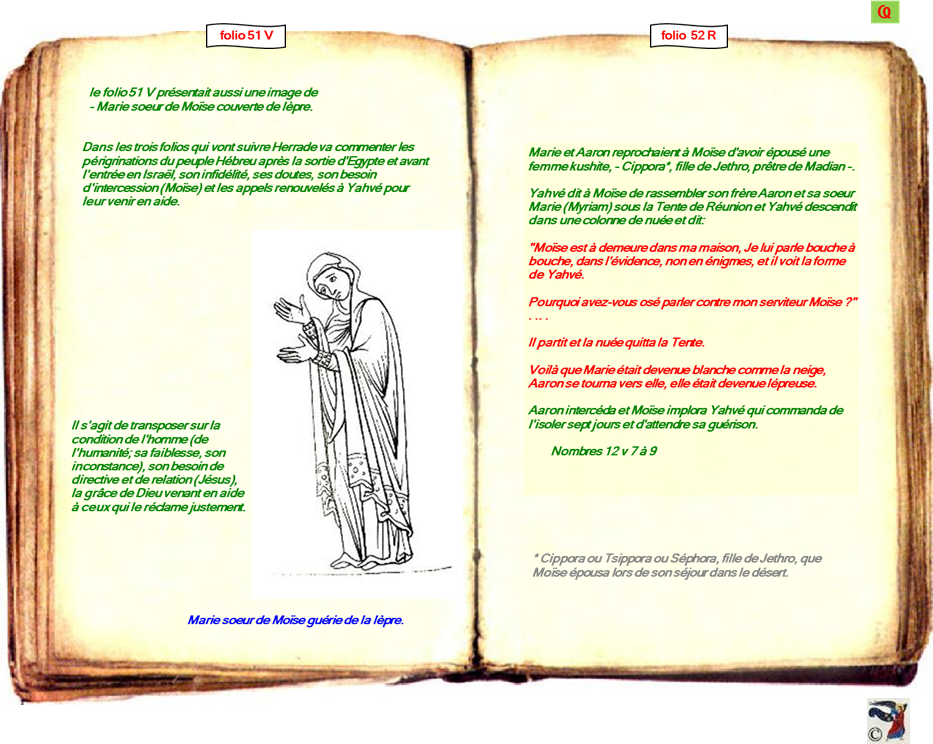 folio 51 V
le folio 51 V présentait aussi une image de
- Marie soeur de Moïse couverte de lèpre.
Dans les trois folios qui vont suivre Herrade va commenter les
périgrinations du peuple Hébreu après la sortie d'Egypte et avant
l'entrée en Israël, son infidélité, ses doutes, son besoin
d'intercession (Moïse) et les appels renouvelés à Yahvé pour
leur venir en aide.
Il s'agit de transposer sur la
condition de l'homme (de
l'humanité; sa faiblesse, son
inconstance), son besoin de
directive et de relation (Jésus),
la grâce de Dieu venant en aide
à ceux qui le réclame justement.
Marie soeur de Moïse guérie de la lèpre.
folio 52 R
Marie et Aaron reprochaient à Moïse d'avoir épousé une
femme kushite, - Cippora*, fille de Jethro, prêtre de Madian -.
Yahvé dit à Moïse de rassembler son frère Aaron et sa soeur
Marie (Myriam) sous la Tente de Réunion et Yahvé descendit
dans une colonne de nuée et dit:
"Moïse est à demeure dans ma maison, Je lui parle bouche à
bouche, dans l'évidence, non en énigmes, et il voit la forme
de Yahvé.
Pourquoi avez-vous osé parler contre mon serviteur Moïse ?"
. .. .
Il partit et la nuée quitta la Tente.
Voilà que Marie était devenue blanche comme la neige,
Aaron se tourna vers elle, elle était devenue lépreuse.
Aaron intercéda et Moïse implora Yahvé qui commanda de
l'isoler sept jours et d'attendre sa guérison.
Nombres 12 v 7 à 9
* Cippora ou Tsippora ou Séphora, fille de Jethro, que
Moïse épousa lors de son séjour dans le désert.
©